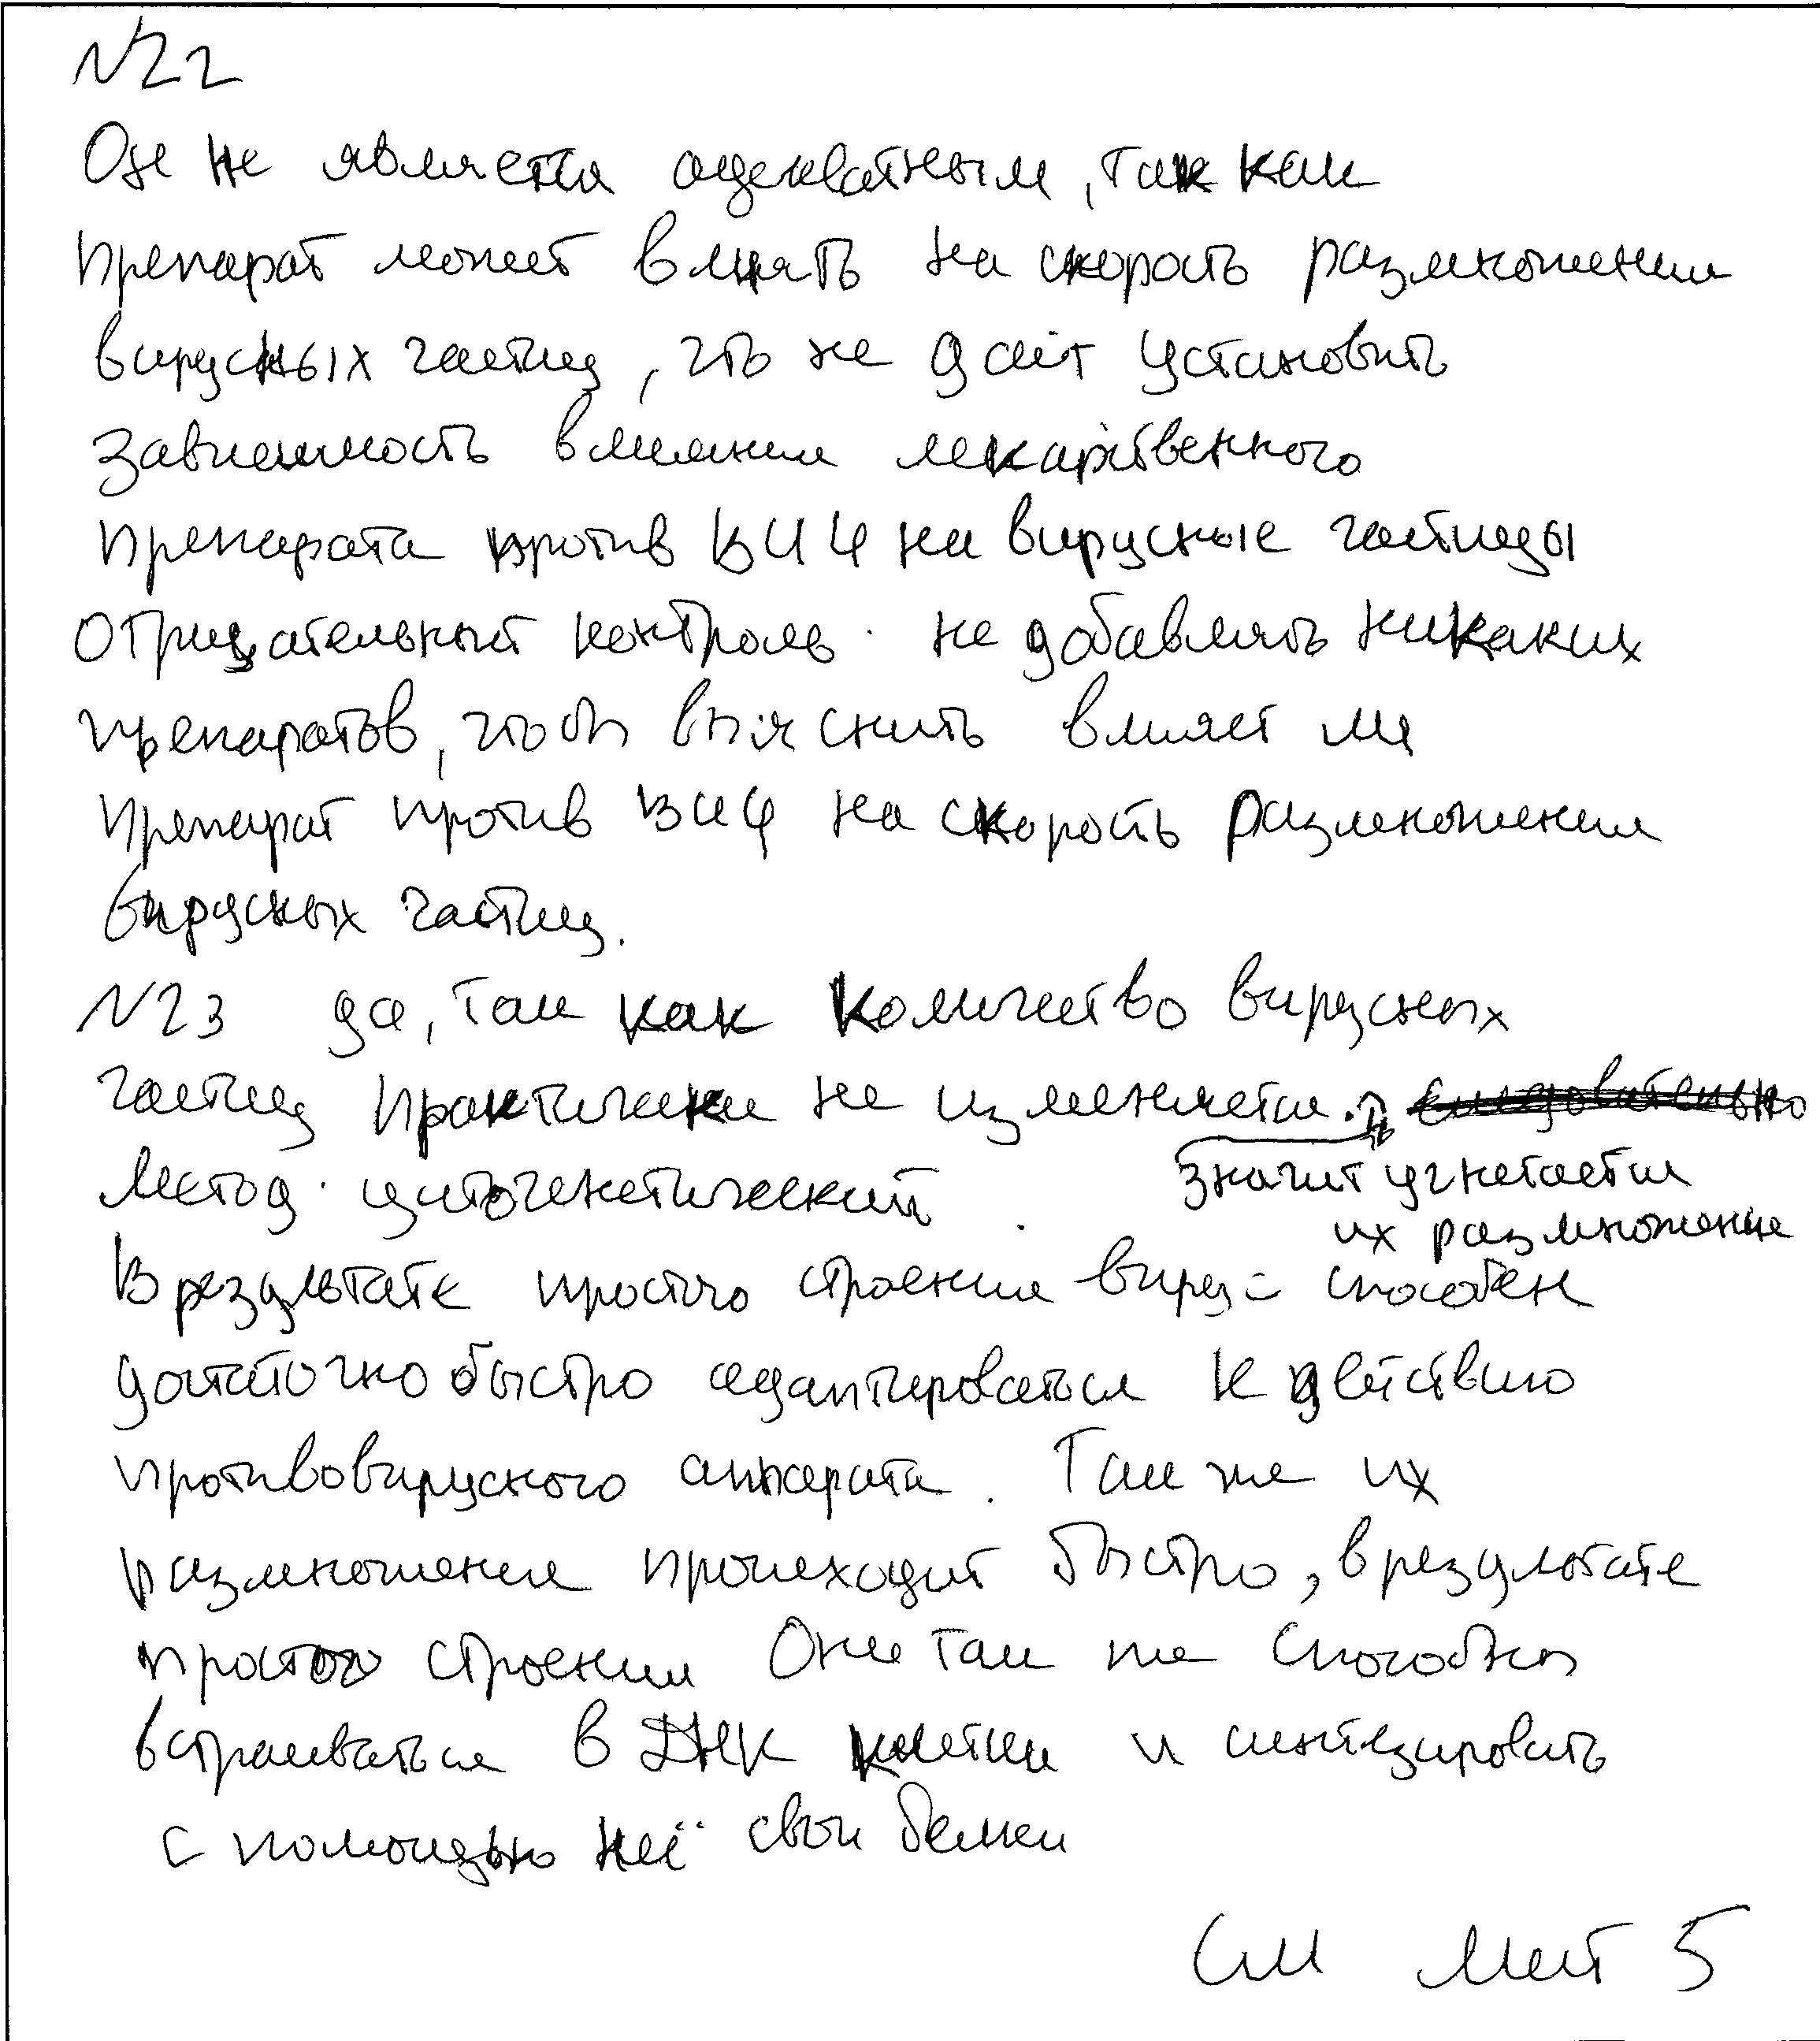 №22
Он не является адекватным, так как
препарат может влиять на скорость размножения
вирусных частиц, что не даёт установить
зависимость влияния лекарственного
препарата против ВИЧ на вирусные частицы
Отрицательный контроль: не добавлять никаких
препаратов, чтобы выяснить влияет ли
препарат против ВИЧ на скорость размножения
вирусных частиц.
№23 да, так как количество вирусных
частиц практически не изменяется.
значит угнетается
их размножение
Метод: цитогенетический.
В результате простого строения вирус способен
достаточно быстро адаптироваться к действию
противовирусного аппарата. Так же их
размножение происходит быстро, в результате
простого строения Они так же способны
встраиваться в ДНК клетки и синтезировать
с помощью неё свои белки
См лист 5